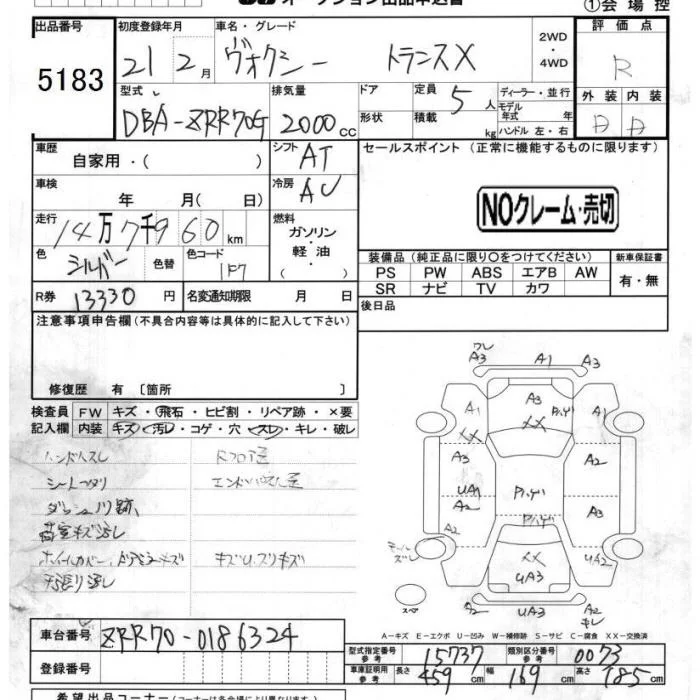 オークション出品申込書
①会場控
出品番号 5183
初度登録年月 21 2月
車名・グレード ヴォクシー トランスX
2WD・4WD
評価点 R
型式 DBA-ZRR70G
排気量 2000cc
ドア
形状
定員 5人
積載 kg
ディーラー・並行
モデル年式 年
ハンドル 左・右
外装 内装
D D
車歴 自家用・( )
シフト AT
セールスポイント (正常に機能するものに限ります)
車検 年 月( 日)
冷房 AC
NOクレーム・売切
走行 14万7千960km
燃料 ガソリン・軽油
色 シルバー 色替
色コード 1F7
装備品 (純正品に限り○をつけてください)
新車保証書
PS PW ABS エアB AW
SR ナビ TV カワ
有・無
R券 13330円
名変通知期限 月 日
後日品
注意事項申告欄(不具合内容等は具体的に記入して下さい)
修復歴 有 [箇所 ]
検査員記入欄
FW キズ・飛石・ヒビ割・リペア跡・×要
内装 キズ・汚レ・コゲ・穴・スレ・キレ・破レ
ハンドルスレ
シートヘタリ
荷室キズ汚レ
天張り汚レ
A3 A1 A3
A1 A3
XX XX
A3 A2
UA1
A2 A3
UA2
XX
UA3
UA3 A2
キレ
スペア
A-キズ E-エクボ U-凹み W-補修跡 S-サビ C-腐食 XX-交換済
車台番号 ZRR70-0186324
登録番号
型式指定番号 参考 15737
類別区分番号 参考 0073
車庫証明用 参考 長さ 459cm 幅 169cm 高さ 185cm
希望出品コーナー